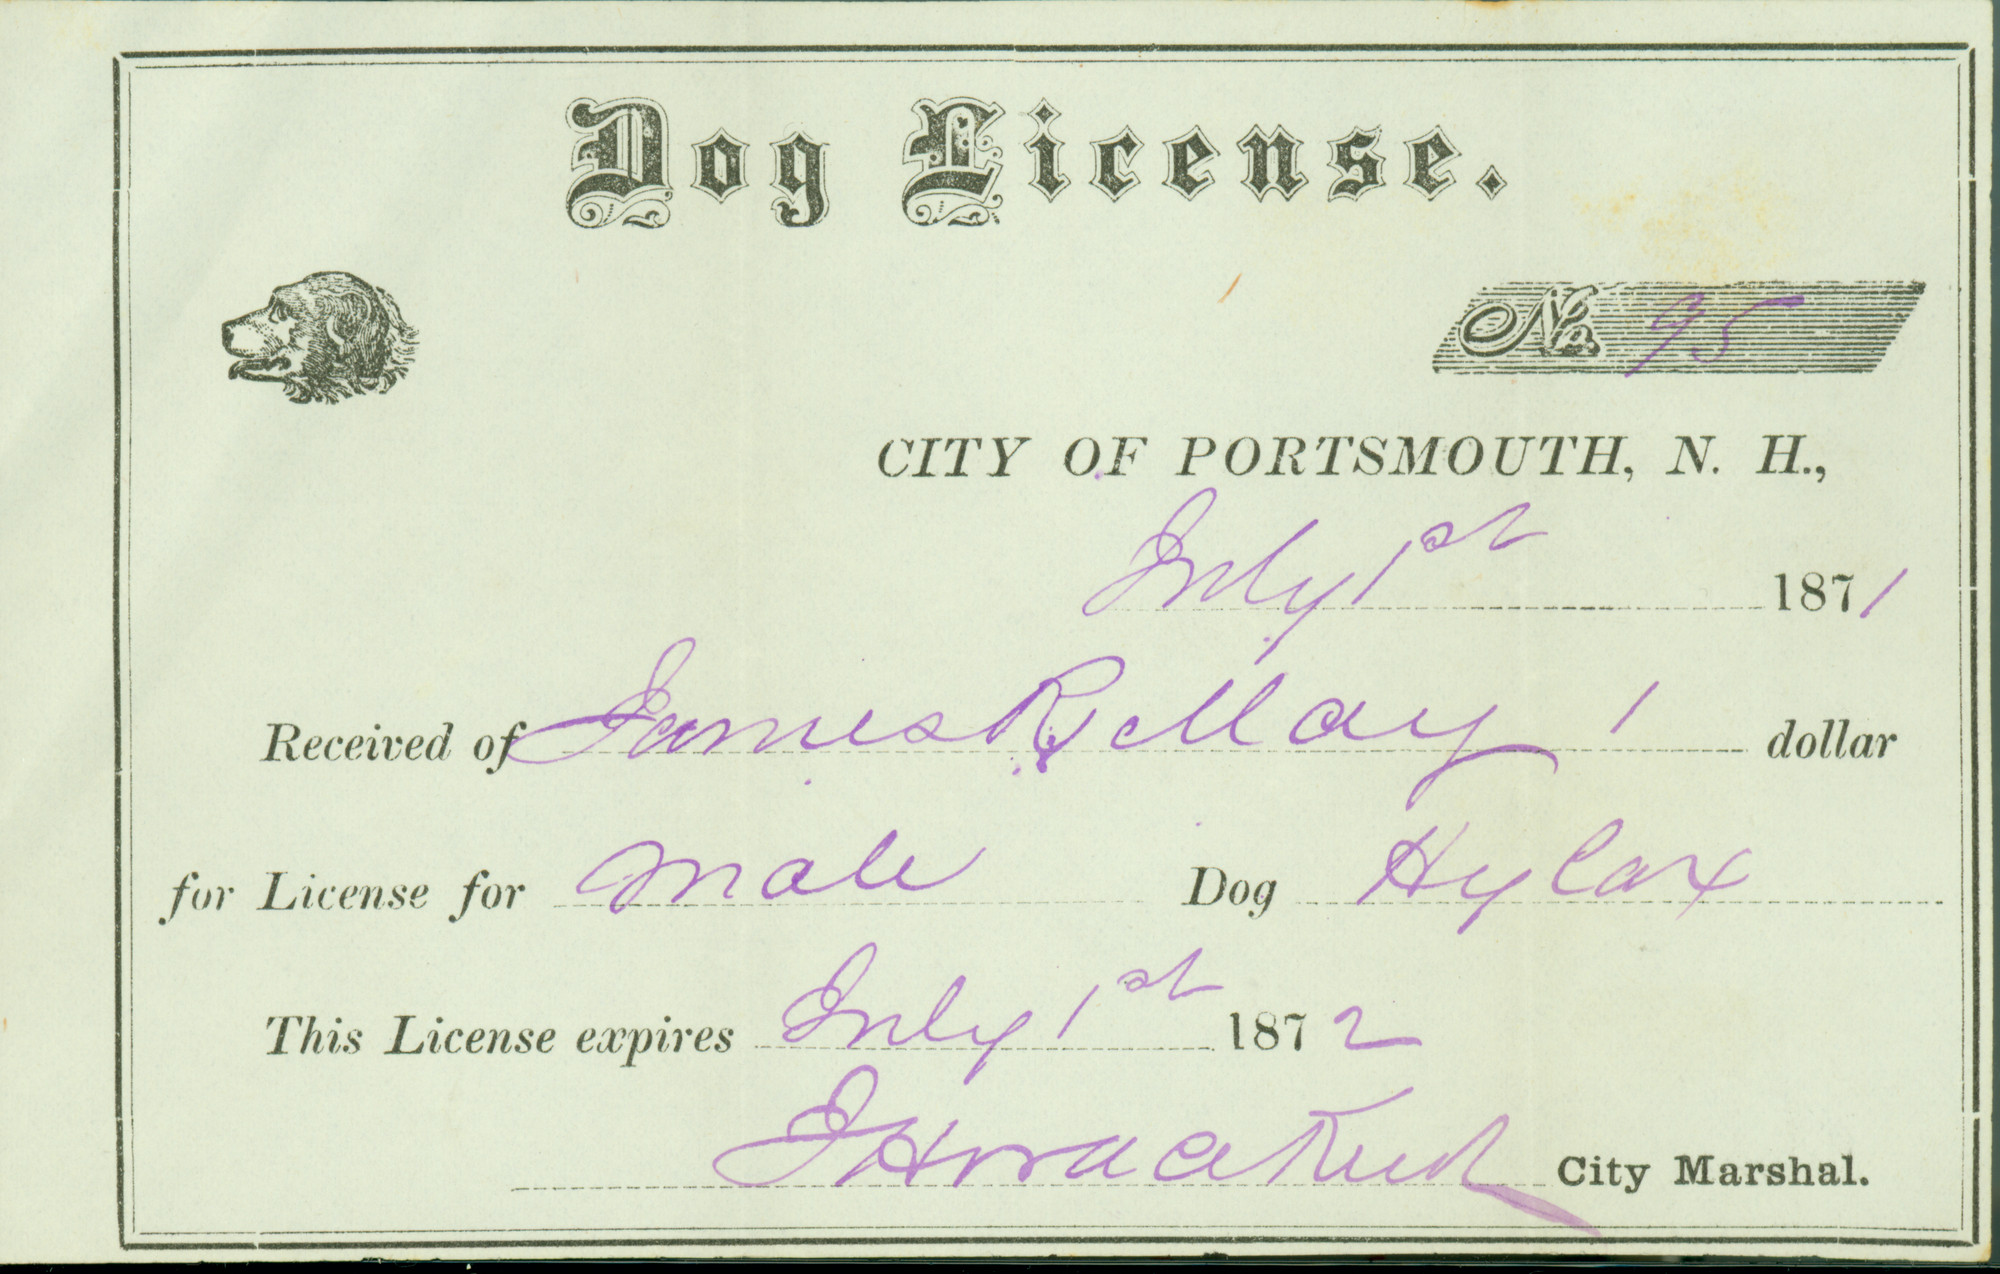 Dog License.
No. 95
CITY OF PORTSMOUTH, N. H.,
July 1st 1871
Received of James R May 1 dollar
for License for male Dog Hylax
This License expires July 1st 1872
City Marshal.